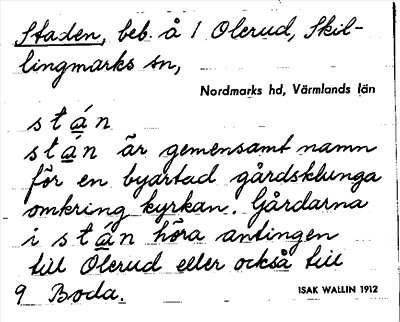 Staden, beb. å 1 Olerud, Skil-
lingmarks sn,
Nordmarks hd, Värmlands län
stán
stán är gemensamt namn
för en byartad gårdsklunga
omkring kyrkan. Gårdarna
i stán höra antingen
till Olerud eller också till
9 Boda.
ISAK WALLIN 1912